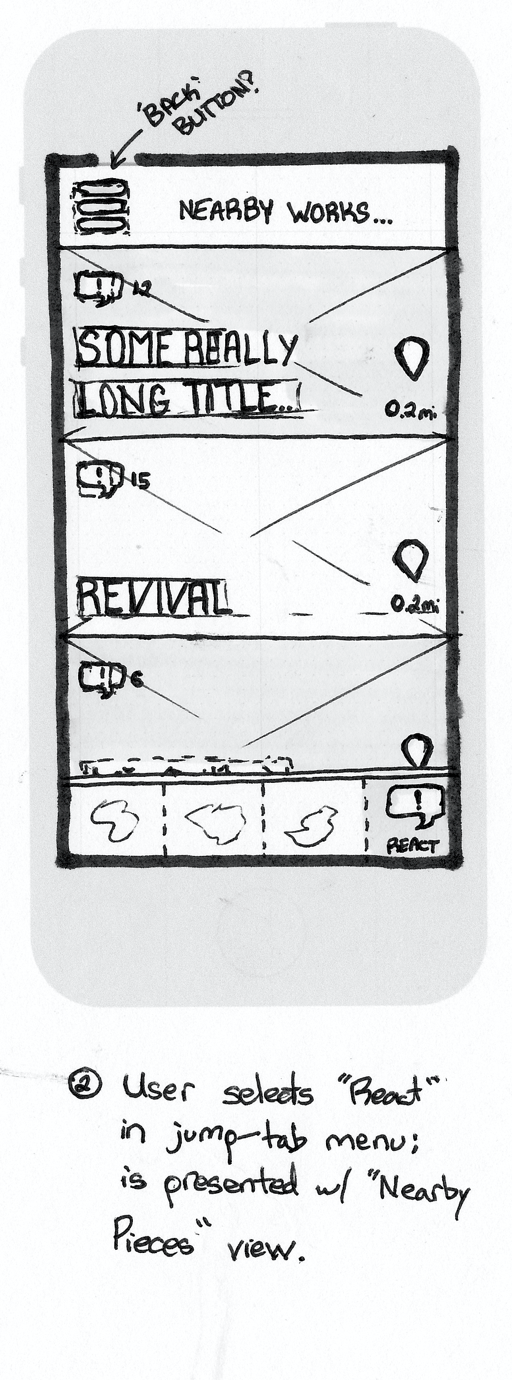 'BACK'
BUTTON?
NEARBY WORKS...
12
SOME REALLY
LONG TITLE...
0.2mi
15
REVIVAL
0.2mi
6
REACT
② User selects "React"
in jump-tab menu;
is presented w/ "Nearby
Pieces" view.